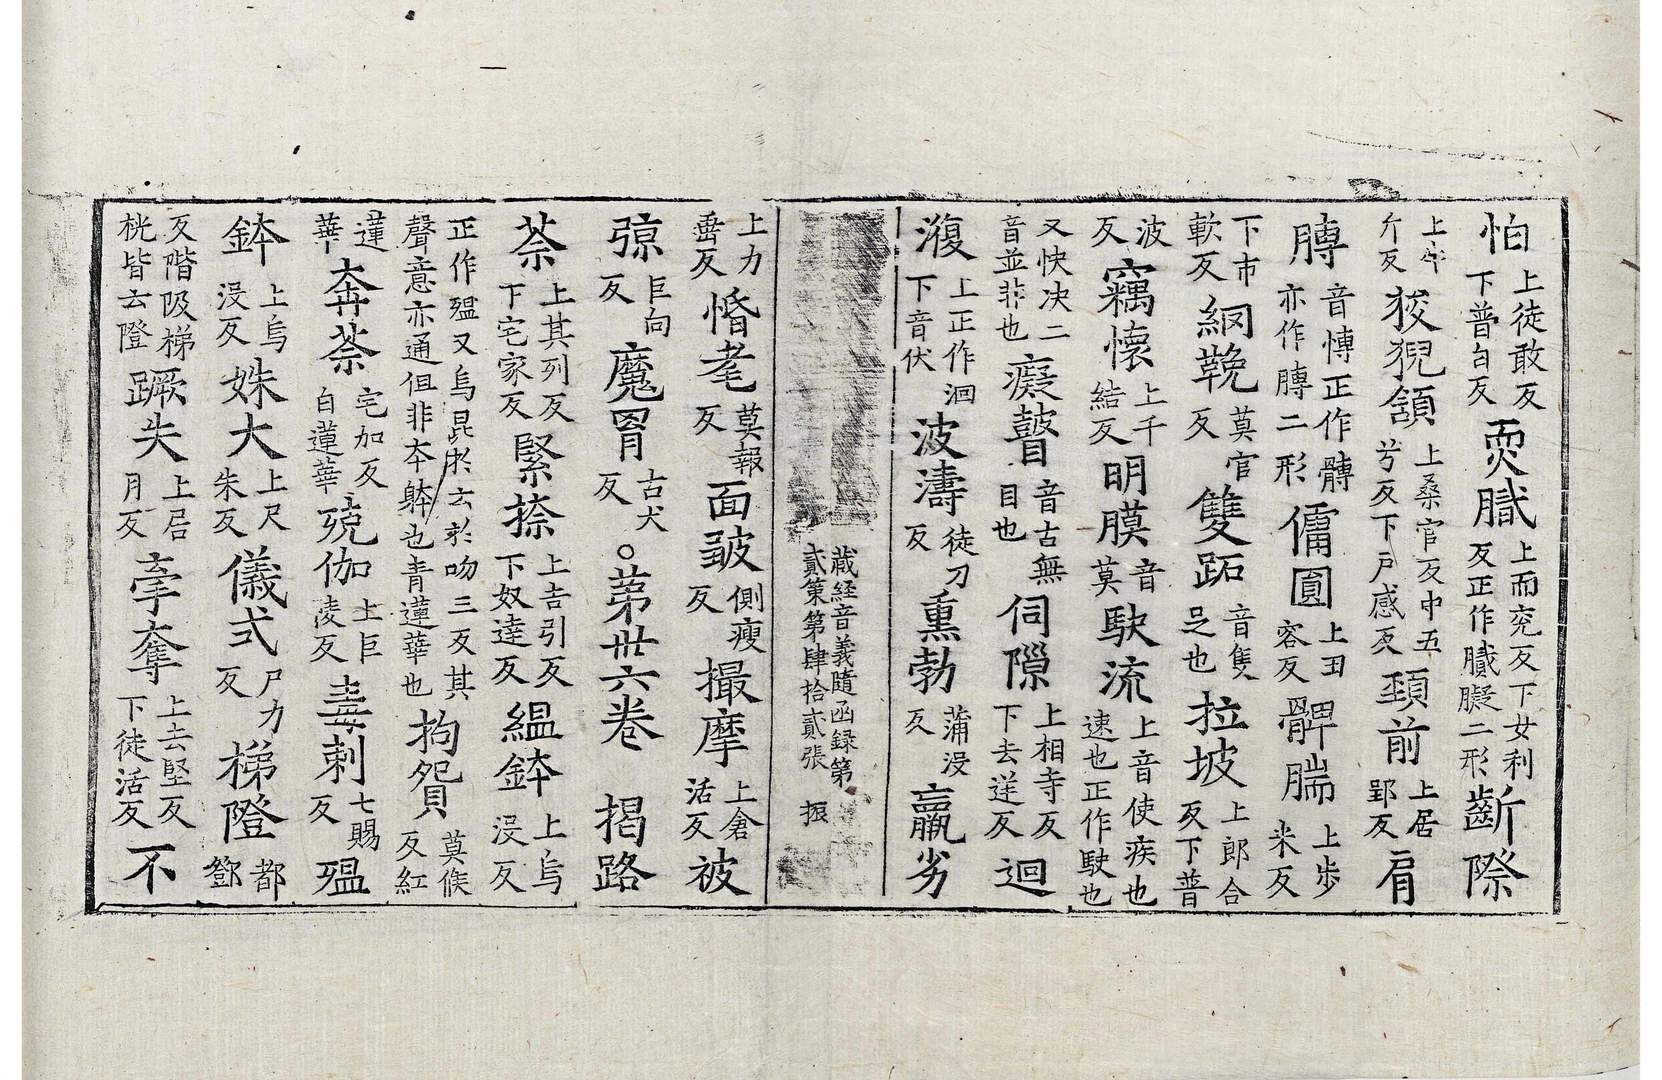 怕上徒敢反下普白反耎膩上而兖反下女利反正作膩𦡶二形齗際
上牛斤反狻猊頷上桑官反中五兮反下户感反頸前上居郢反肩
膞音慱正作髆亦作膊二形傭圓上丑容反髀腨上步米反
下市軟反網鞔莫官反雙跖音隻足也拉坡上郎合反下普
波反竊懷上千結反明膜音莫駃流上音使疾也速也正作駛也
又快决二音並非也癡瞽音古無目也伺隙上相寺反下去逆反迴
澓上正作洄下音伏波濤徒刀反熏勃蒲没反羸劣
藏経音義隨函録第貳策第肆拾貳張 振
上力垂反惛耄莫報反面皺側瘦反撮摩上倉活反被
弶巨向反魔罥古犬反○第卅六卷 揭路
荼上其列反下宅家反緊捺上吉引反下奴達反緼鉢上烏没反
正作殟又烏昆於云於吻三反其聲意亦通但非夲躰也青蓮華也拘貿莫候反紅
蓮華奔荼宅加反白蓮華殑伽上巨凌反毒刺七賜反殟
鉢上烏没反姝大上尺朱反儀式尸力反梯隥都鄧
反階阪梯桄皆云隥蹶失上居月反牽奪上去堅反下徒活反不